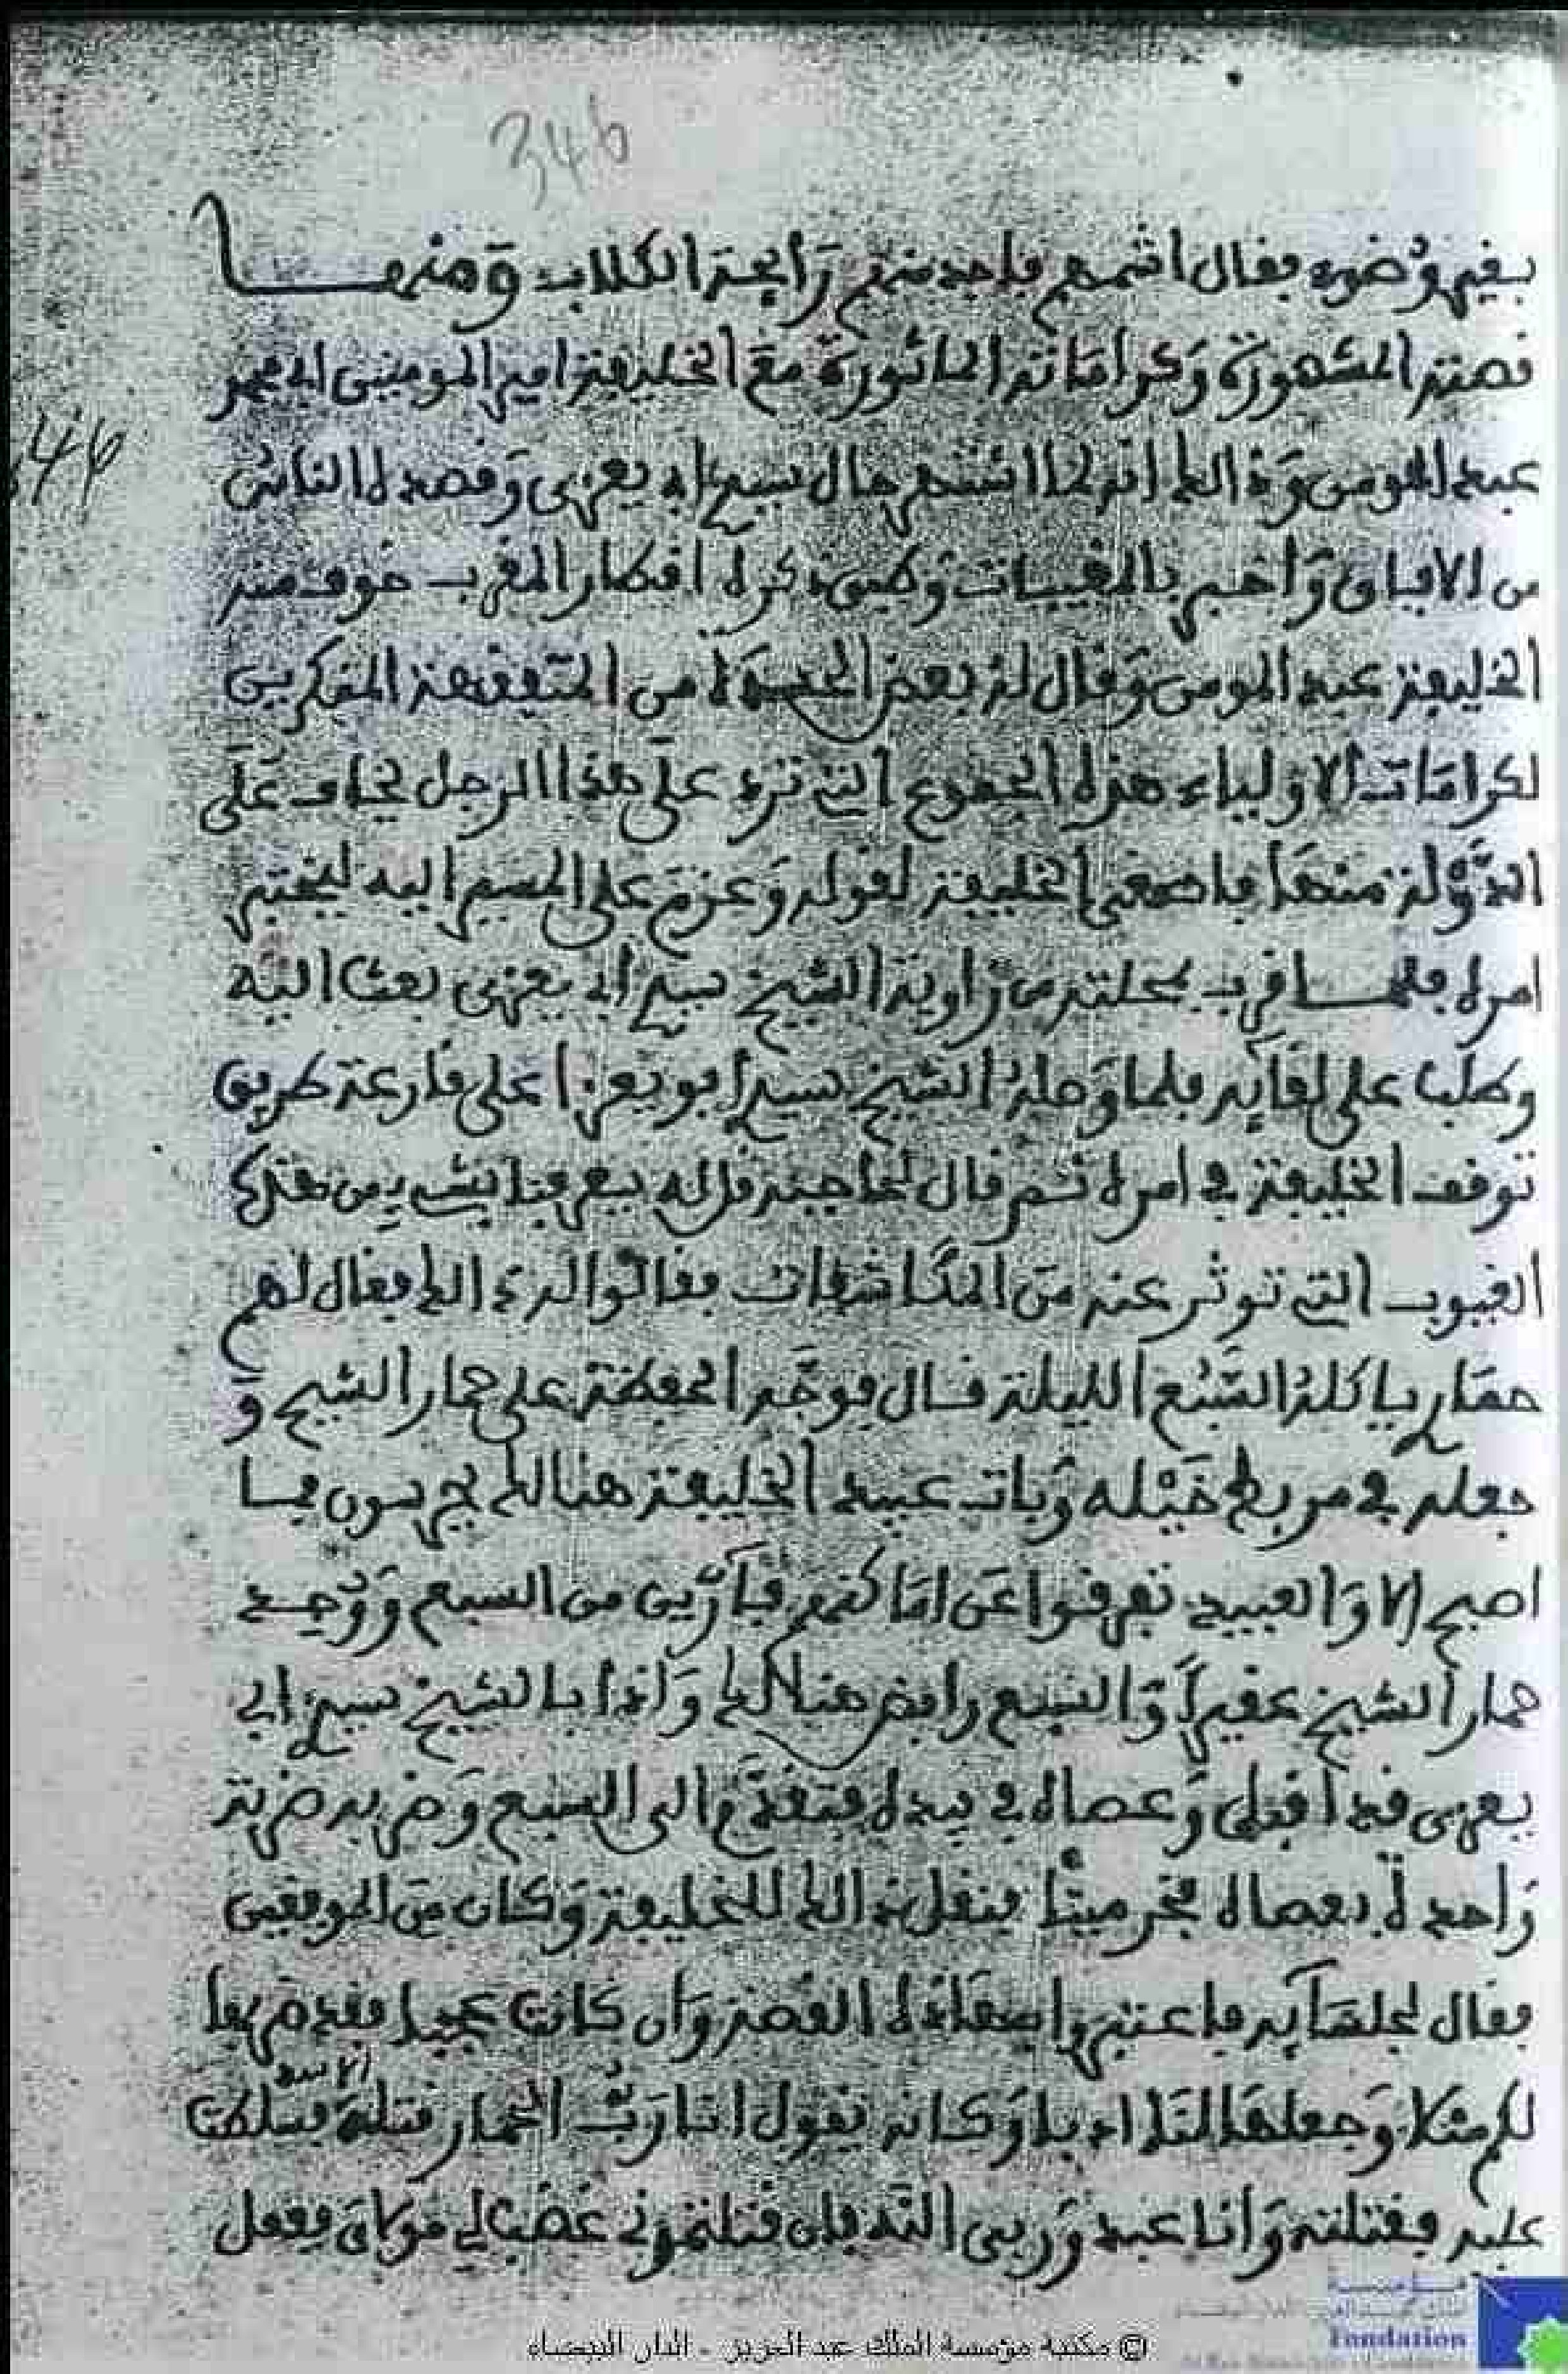 346
بقي وضوه فقال اشمم فاجد منهم رايحة الكلاب ومنها
قصته المشهورة وكراماته الماثورة مع الخليفة امير المومنين ابي محمد
446
عبد المومن وذالك انه لما اشتهر حال سيدي ابي يعزى وقصده الناس
من الافاق واخبر بالمغيبات وطمى ذكره اقطار المغرب خوف منه
الخليفة عبد المومن وقال له بعض الحسدة من المتفقهة المنكرين
لكرامات الاولياء هذه الجموع التي ترد على هذا الرجل يخاف على
الدولة منها فاصغى الخليفة لقوله وعزم على المسير اليه ليختبر
امره فلما قرب بمحلته من زاوية الشيخ سيدي ابي يعزى بعث اليه
وطلب على لقايه فلما وصله الشيخ سيدي ابو يعزا على قارعة طريق
توقف الخليفة في امره ثم قال لحاجبه قل له يعرفنا بشيء من هذه
الغيوب التي توثر عنه من المكاشفات فقالوا له ذالك فقال لهم
حماري ياكله السبع الليلة قال فوجه الحفظة على حمار الشيخ و
جعله في مربط خيله وبات عبيد الخليفة هنالك يحرسون فما
اصبح الا والعبيد تفرقوا عن اماكنهم فارين من السبع ووجد
حمار الشيخ عقيرا والسبع رابض هنالك واذا بالشيخ سيدي ابي
يعزى قد اقبل وعصاه في يده فتقدم الى السبع وضربه ضربة
واحدة بعصاه فخر ميتا فنقل ذالك للخليفة وكان من الموفقين
فقال لجلسايه فاعتبروا هذه القصة وان كانت عجيبة فقد ضربها
لكم مثلا وجعلها لنا ادبا وكانه يقول انا رب الحمار قتله الاسد فسلطت
عليه فقتلته وانا عبد وربي الله فان قتلتموني غضب لي مولاي ففعل
© مكتبة مؤسسة الملك عبد العزيز - الدار البيضاء
Fondation